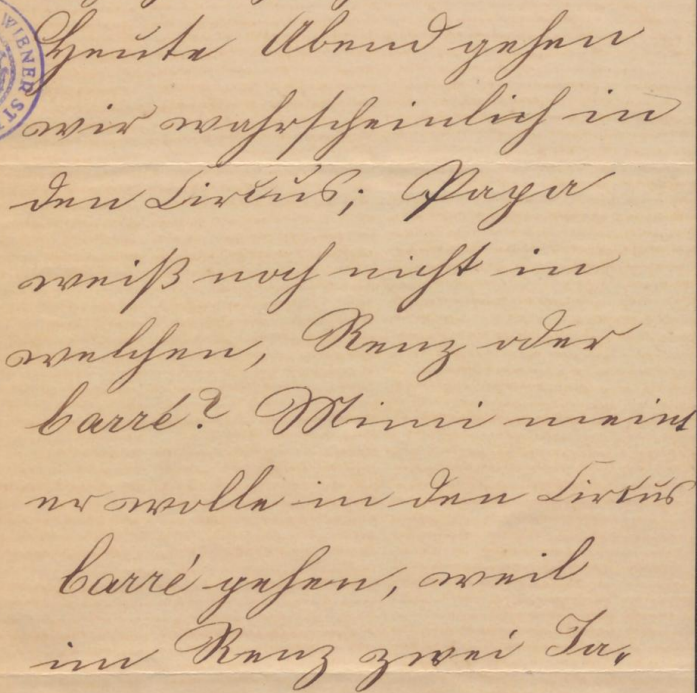 WIENER ST
Heute Abend gehen
wir wahrscheinlich in
den Circus; Papa
weiß noch nicht in
welchen, Renz oder
Carré? Mimi meint
er wolle in den Circus
Carré gehen, weil
im Renz zwei Ja-